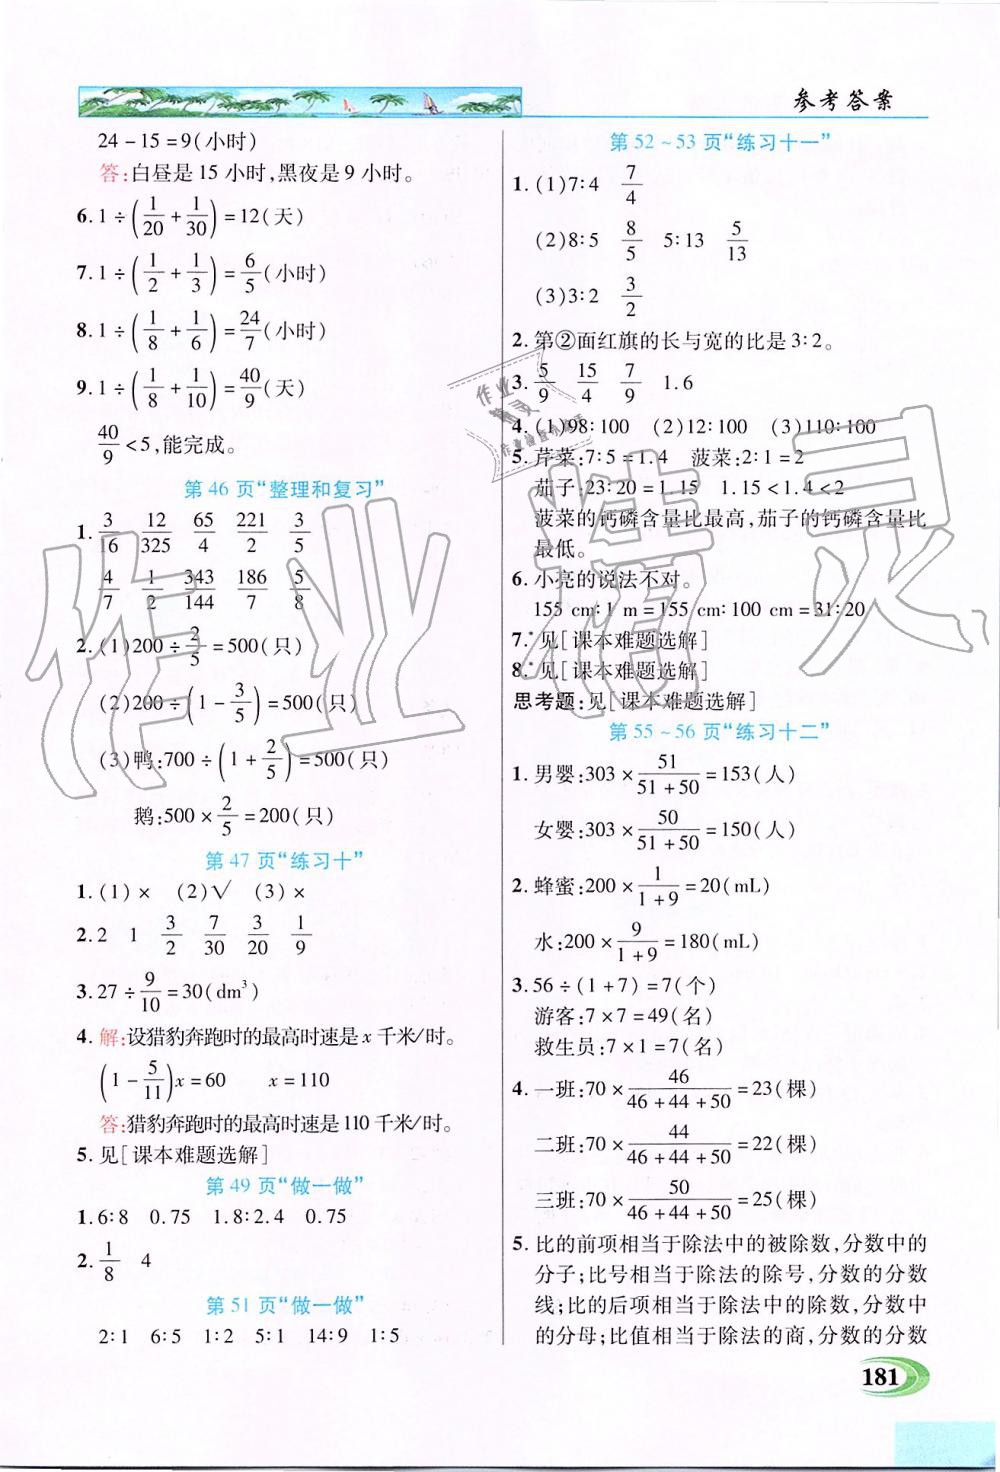 参考答案
24-15=9(小时)
答:白昼是15小时,黑夜是9小时。
6.1÷(1/20+1/30)=12(天)
7.1÷(1/2+1/3)=6/5(小时)
8.1÷(1/8+1/6)=24/7(小时)
9.1÷(1/8+1/10)=40/9(天)
40/9<5,能完成。
第46页“整理和复习”
1. 3/16 12/325 65/4 221/2 3/5
4/7 1/2 343/144 186/7 5/8
2.(1)200÷2/5=500(只)
(2)200÷(1-3/5)=500(只)
(3)鸭:700÷(1+2/5)=500(只)
鹅:500×2/5=200(只)
第47页“练习十”
1.(1)× (2)√ (3)×
2.2 1 3/2 7/30 3/20 1/9
3.27÷9/10=30(dm³)
4.解:设猎豹奔跑时的最高时速是x千米/时。
(1-5/11)x=60 x=110
答:猎豹奔跑时的最高时速是110千米/时。
5.见[课本难题选解]
第49页“做一做”
1.6∶8 0.75 1.8∶2.4 0.75
2. 1/8 4
第51页“做一做”
2∶1 6∶5 1∶2 5∶1 14∶9 1∶5
第52~53页“练习十一”
1.(1)7∶4 7/4
(2)8∶5 8/5 5∶13 5/13
(3)3∶2 3/2
2.第②面红旗的长与宽的比是3∶2。
3. 5/9 15/4 7/9 1.6
4.(1)98∶100 (2)12∶100 (3)110∶100
5.芹菜:7∶5=1.4 菠菜:2∶1=2
茄子:23∶20=1.15 1.15<1.4<2
菠菜的钙磷含量比最高,茄子的钙磷含量比
最低。
6.小亮的说法不对。
155 cm∶1 m=155 cm∶100 cm=31∶20
7.*见[课本难题选解]
8.*见[课本难题选解]
思考题:见[课本难题选解]
第55~56页“练习十二”
1.男婴:303×51/(51+50)=153(人)
女婴:303×50/(51+50)=150(人)
2.蜂蜜:200×1/(1+9)=20(mL)
水:200×9/(1+9)=180(mL)
3.56÷(1+7)=7(个)
游客:7×7=49(名)
救生员:7×1=7(名)
4.一班:70×46/(46+44+50)=23(棵)
二班:70×44/(46+44+50)=22(棵)
三班:70×50/(46+44+50)=25(棵)
5.比的前项相当于除法中的被除数,分数中的
分子;比号相当于除法的除号,分数的分数
线;比的后项相当于除法中的除数,分数中
的分母;比值相当于除法的商,分数的分数
181
作业精灵